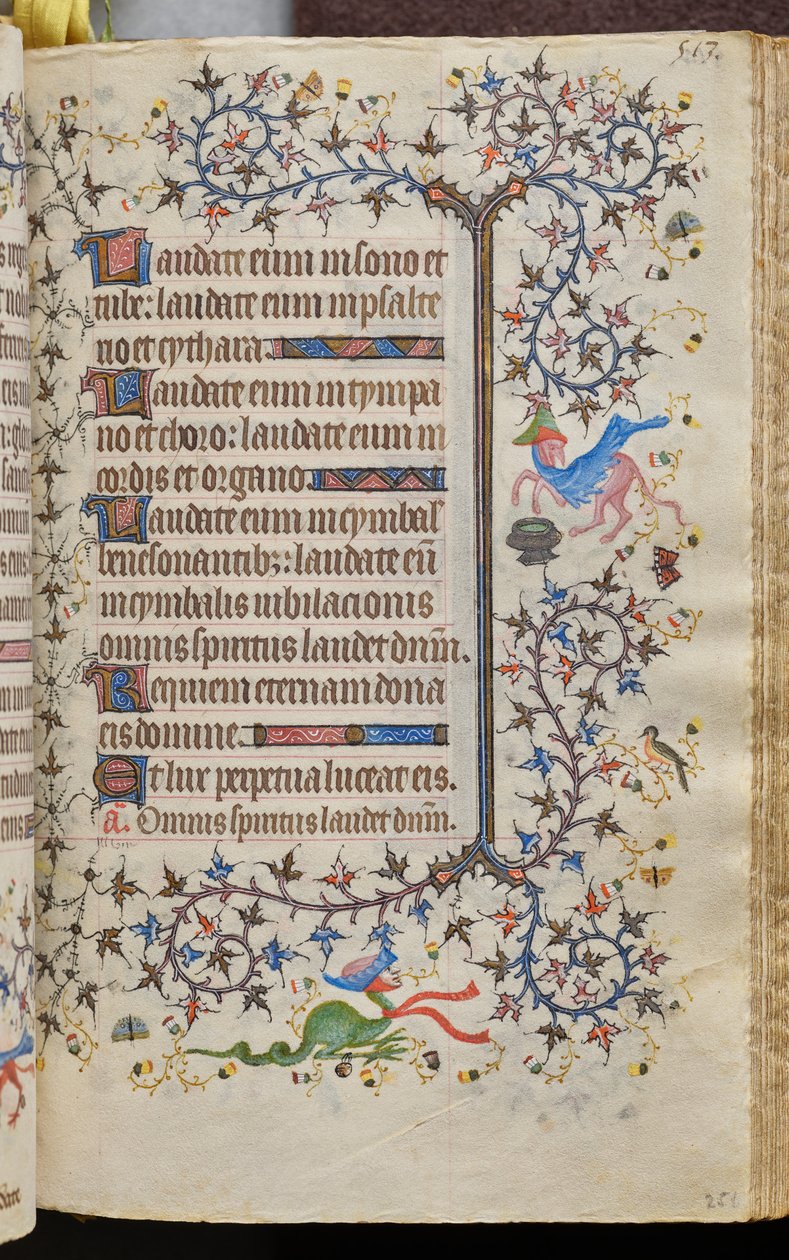 513.
Laudate eum in sono et
tube: laudate eum in psalte
rio et cythara.
Laudate eum in tympa
no et choro: laudate eum in
cordis et organo.
Laudate eum in cymbal
benesonantibz: laudate eū
in cymbalis iubilacionis
omnis spiritus laudet dnm̄.
Requiem eternam dona
eis domine.
Et lux perpetua luceat eis.
a. Omnis spiritus laudet dnm̄.
251